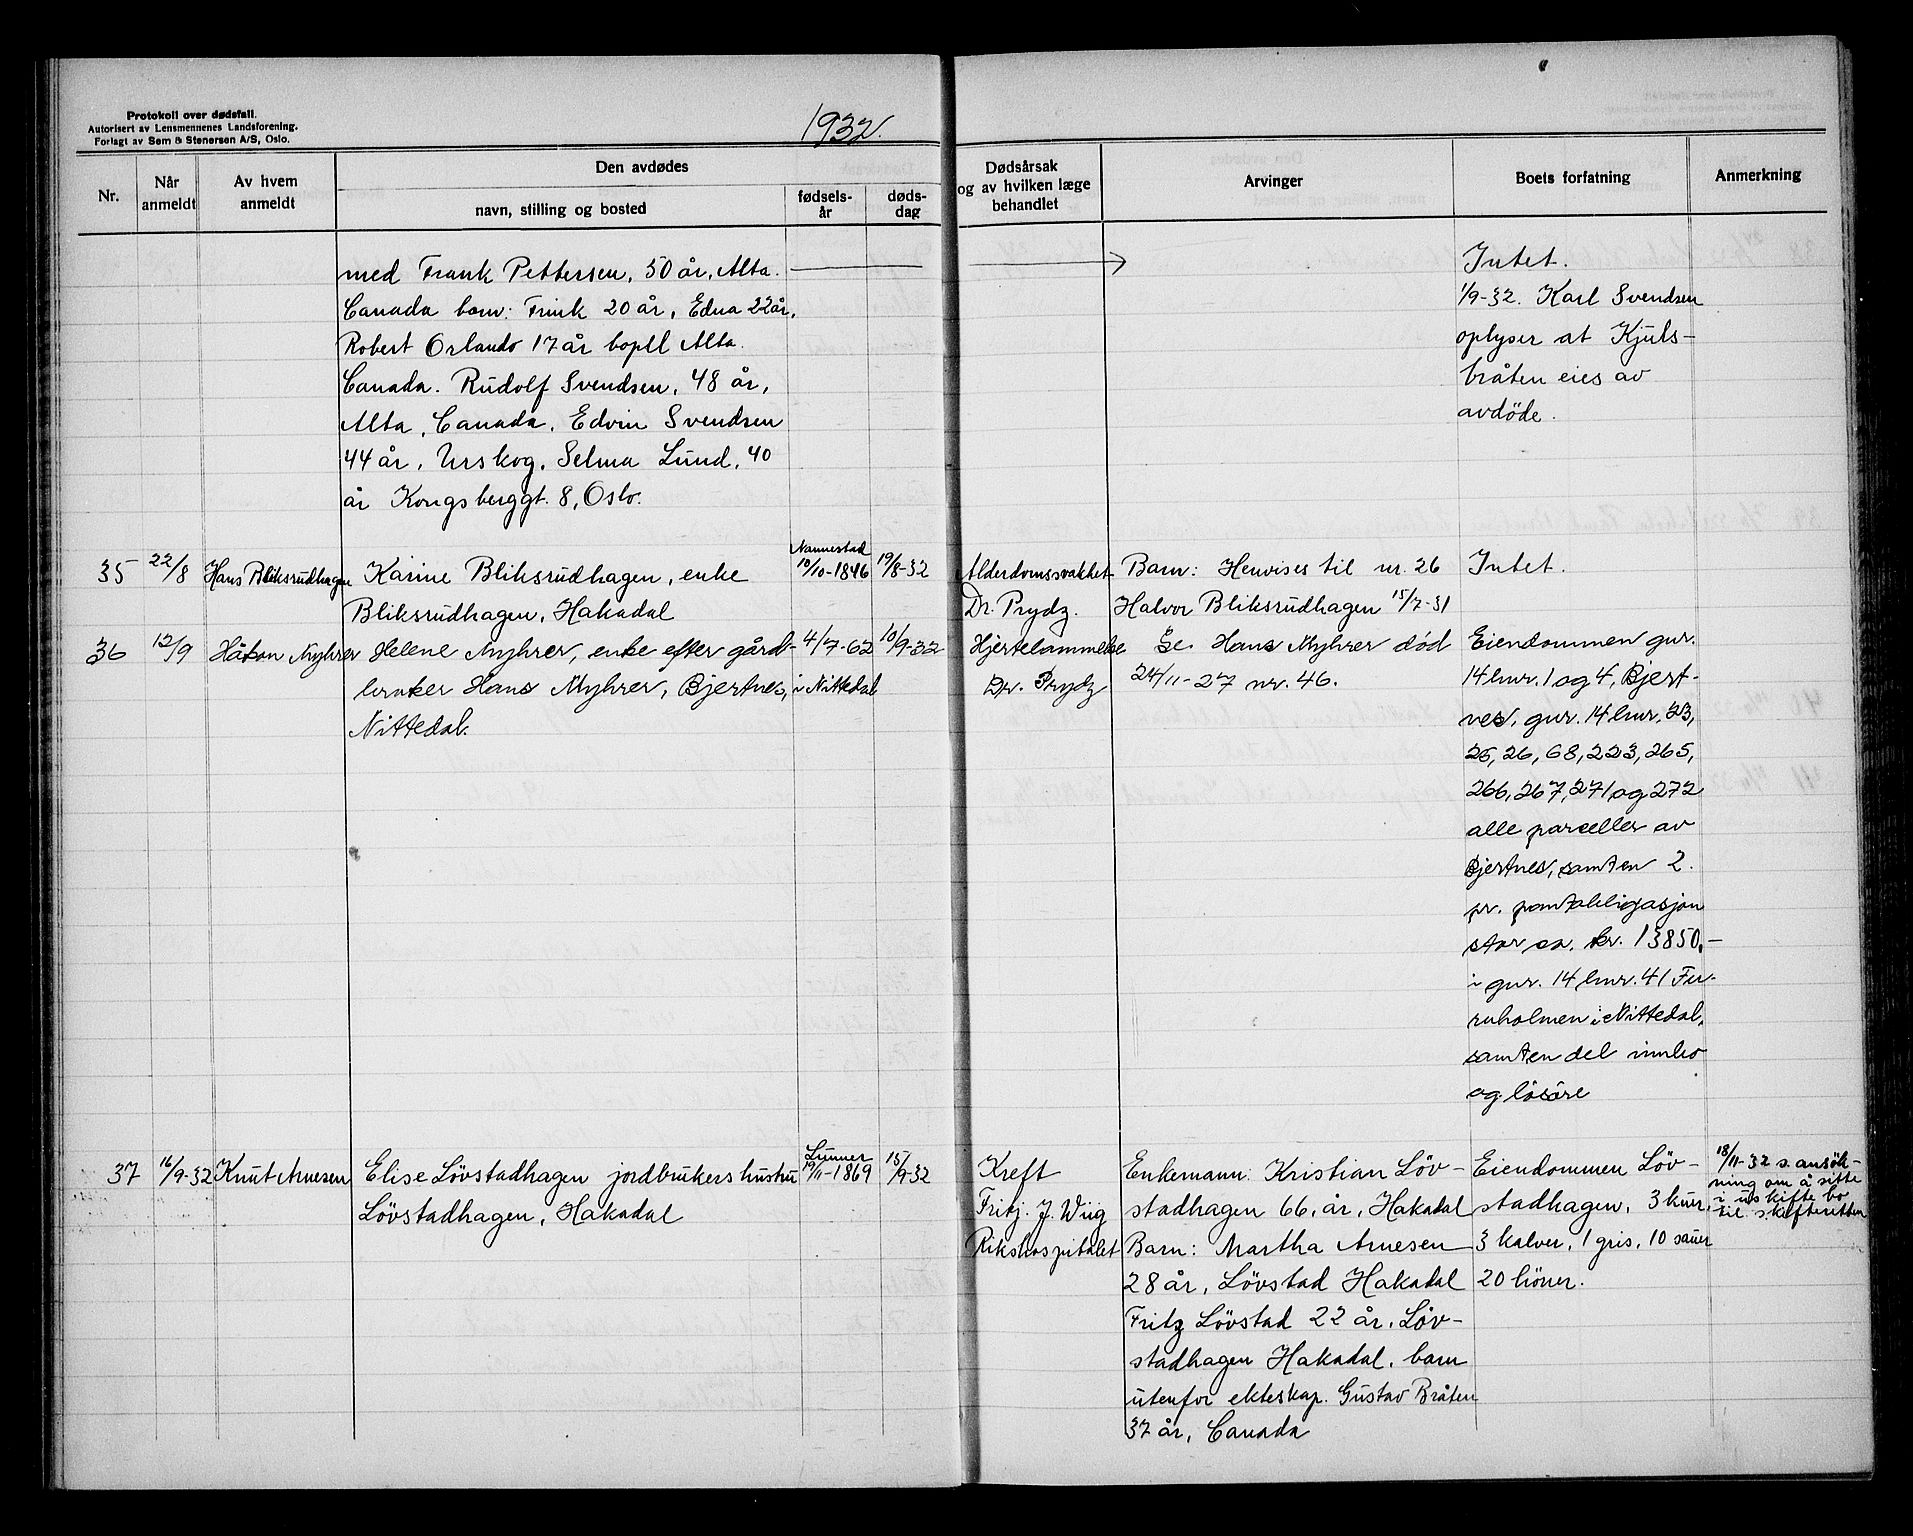 Protokoll over dødsfall.
Autorisert av Lensmennenes Landsforening.
Forlagt av Sem & Stenersen A/S, Oslo.
1932.
Nr.
Når anmeldt
Av hvem anmeldt
Den avdødes
navn, stilling og bosted
fødsels-
år
døds-
dag
Dødsårsak
og av hvilken læge
behandlet
Arvinger
Boets forfatning
Anmerkning
med Frank Pettersen, 50 år, Alta.
Canada barn: Frink 20 år, Edna 22 år,
Robert Orlando 17 år boptl Alta.
Canada. Rudolf Svendsen, 48 år,
Alta, Canada, Edvin Svendsen
44 år, Urskog, Selma Lund, 40
år Kongsberggt. 8, Oslo.
Intet.
1/9-32. Karl Svendsen
oplyser at Kjuls-
bråten eies av
avdöde.
35 22/8 Hans Bliksrudhagen
Karine Bliksrudhagen, enke
Bliksrudhagen, Hakadal
Nannestad
10/10-1846
19/8-32
Alderdomssvakhet
Dr. Prydz.
Barn: Henvises til nr. 26
Halvor Bliksrudhagen 15/7-31
Intet.
36 12/9 Håkon Myhrer
Helene Myhrer, enke efter gård-
bruker Hans Myhrer, Bjertnes,
Nittedal.
4/7-62
i Nittedal
10/9-32
Hjertelammelse
Dr. Prydz
Se Hans Myhrer död
24/11-27 nr. 46.
Eiendommen gnr.
14 bnr. 1 og 4, Bjert-
nes, gnr. 14 bnr. 23,
25, 26, 68, 223, 265,
266, 267, 271 og 272
alle parceller av
Bjertnes, samt en 2.
pr. pantobligasjon
stor ca. kr. 13850,-
i gnr. 14 bnr. 41 Fu-
ruholmen i Nittedal,
samt en del innbo
og lösöre
37 16/9-32 Knut Arnesen
Elise Lövstadhagen jordbrukers hustru
Lövstadhagen, Hakadal
Lunner
19/11-1869
15/9-32
Kreft
Fritj. J. Wiig
Rikshospitalet
Enkemann: Kristian Löv-
stadhagen 66, år, Hakadal
Barn: Martha Arnesen
28 år, Lövstad Hakadal
Fritz Lövstad 22 år, Löv-
stadhagen Hakadal, barn
utenfor ekteskap. Gustav Bråten
37 år, Canada
Eiendommen Löv-
stadhagen, 3 kuer,
3 kalver, 1 gris, 10 sauer
20 höner.
18/11-32 s. ansök-
ning om å sitte
i uskifte bo
til skifteretten